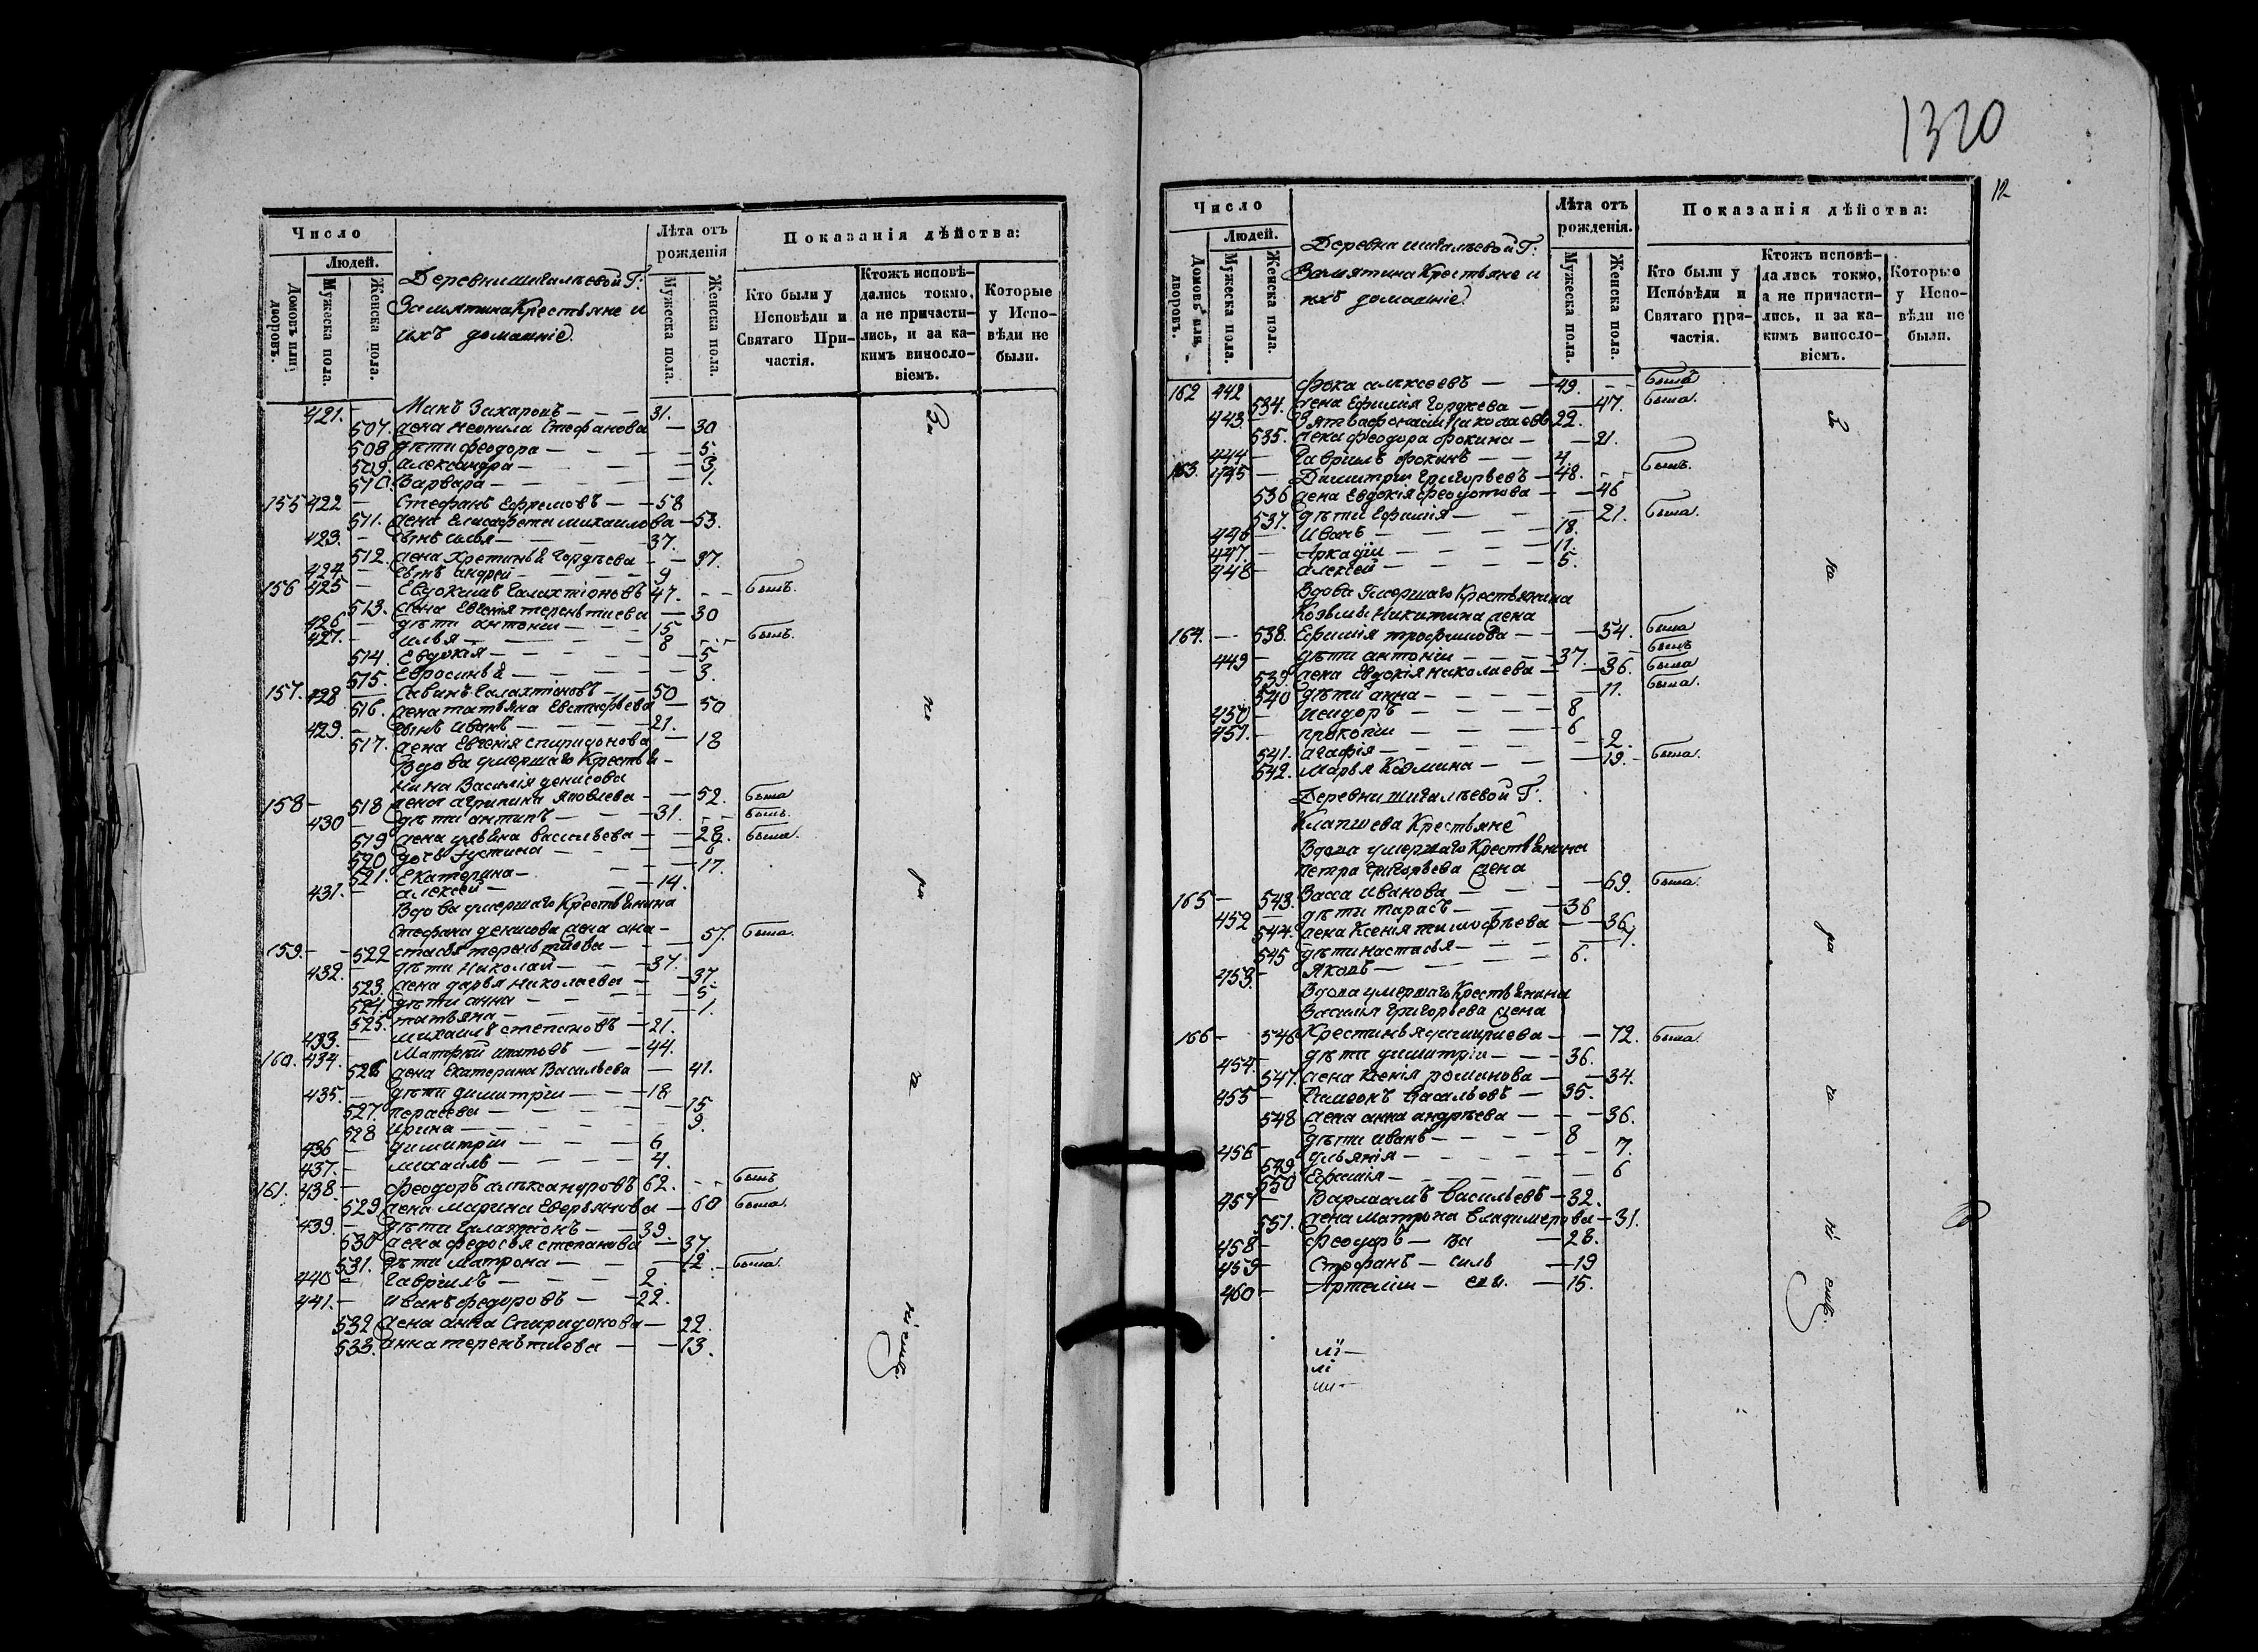 Число
Людей.
Домовъ или дворовъ.
Мужеска пола.
Женска пола.
Деревни шигальевой Г:
Замятина Крестьяне и
ихъ домашніе.
Лѣта отъ рожденія
Мужеска пола.
Женска пола.
Показанія дѣйства:
Кто были у Исповѣди и Святаго Причастія.
Ктожъ исповѣдались токмо, а не причастились, и за какимъ винословіемъ.
Которые у Исповѣди не были.
421. — Захаровъ — 31.
507. жена неонила Стефанова — 30
508 дѣти феодора — 5.
509. александра — 3.
510. Варвара — 1.
155 422 — Стефанъ Ефремовъ — 58
511. жена Елисафета михаилова — 53.
423. — сынъ илья — 37.
512. жена Хрстинья Гордѣева — 37.
424. — сынъ андрей — 9
156 425 — Евдокимъ Галахтіоновъ 47. былъ.
513. жена Евгенія терентиева — 30
426 — дѣти антоніи — 15
427. — илья — 8 былъ.
514. Евдокія — 5
515. Евросинья — 3.
157. 428 — Савинъ Галахтіоновъ — 50
516. жена татьяна Евстифьева — 50
429. — сынъ иванъ — 21.
517. жена Евгенія спиридонова — 18
Вдова умершаго Крестья-
нина Василія денисова
158 — 518 жена агрипина Яковлева — 52. была
430 дѣти антипъ — 31. былъ.
519 жена ульяна васильева — 28. была.
520 дочь Устина — 6
521. Екатерина — 17.
431. — алексей — 14.
Вдова умершаго Крестьянина
Стефана денисова жена ана-
159. — 522 стасья терентиева — 57. была.
432. — дѣти Николай — 37.
523. жена дарья николаева — 37.
524. дѣти анна — 5
525. татьяна — 1.
433. — михаилъ степановъ — 21.
160. 434. — Матфей ипатовъ — 44.
526 жена Екатерина Васильева — 41.
435. — дѣти димитріи — 18
527. парасева — 15
528 ирина — 9.
436 — димитріи — 6
437. — михаилъ — 4.
161. 438. — феодоръ александровъ 62. былъ
529 жена марина Аверьянова — 60 была.
439. — дѣти Галахтіонъ — 39.
530 жена федосья степанова — 37.
531. дѣти матрона — 12. была.
440 — Гавріилъ — 2.
441. — иванъ федоровъ — 22.
532 жена анна Спиридонова — 22.
533. анна терентиева — 13.
За
не
ра
че
ніемъ.
1320
12
Число
Людей.
Домовъ или дворовъ.
Мужеска пола.
Женска пола.
Деревни шигальевой Г:
Замятина Крестьяне и
ихъ домашніе
Лѣта отъ рожденія.
Мужеска пола.
Женска пола.
Показанія дѣйства:
Кто были у Исповѣди и Святаго Причастія.
Ктожъ исповѣдались токмо, а не причастились, и за какимъ винословіемъ.
Которые у Исповѣди не были.
162 442 фока алексеевъ — 49. былъ
534. жена Ефимія Гордеева — 47. была.
443. — Зять афонасіи Николаевъ 22.
535. жена феодора фокина — 21.
444 — Гавріилъ фокинъ — 4
163. 445 — Димитріи Григорьевъ — 48. былъ.
536 жена Евдокія феодотова — 46
537. дѣти Ефимія — 21. была.
446 — Иванъ — 18.
447. — Аркадіи — 11.
448 — алексей — 5.
Вдова Умершаго Крестьянина
Козьмы Никитина жена
164. — 538. Ефимія трофимова — 54. была
449 — дѣти антоніи — 37. былъ
539. жена Евдокія николаева — 36. была
540 дѣти анна — 11. была.
450 — исидоръ — 8
451. — прокопіи — 6
541. агафія — 2.
542. марья Козмина — 19. — была.
Деревни шигальевой Г.
Клапшева Крестьяне
Вдова умершаго Крестьянина
петра Григорьева жена
165 — 543. Васса иванова — 69. была.
452 — дѣти тарасъ — 36
544. жена Ксенія тимофѣева — 36.
545 дѣти настасья — 7.
453. — Яковъ — 6.
Вдова умершаго Крестьянина
Василія Григорьева жена
166 — 546 Крестинья димитриева — 72. была.
454. — дѣти димитріи — 36.
547. жена ксенія романова — 34.
455 — Васильевъ — 35.
548 жена анна андрѣева — 36.
456 — дѣти иванъ — 8
549. ульянія — 7.
550 Ефимія — 6
457 — Варлаамъ васильевъ — 32.
551. жена матрона владимерова — 31.
458 — феодоръ — 28.
459 — Стефанъ — 19
460 — Артеміи — 15.
За
не
ра
че
ні
емъ.